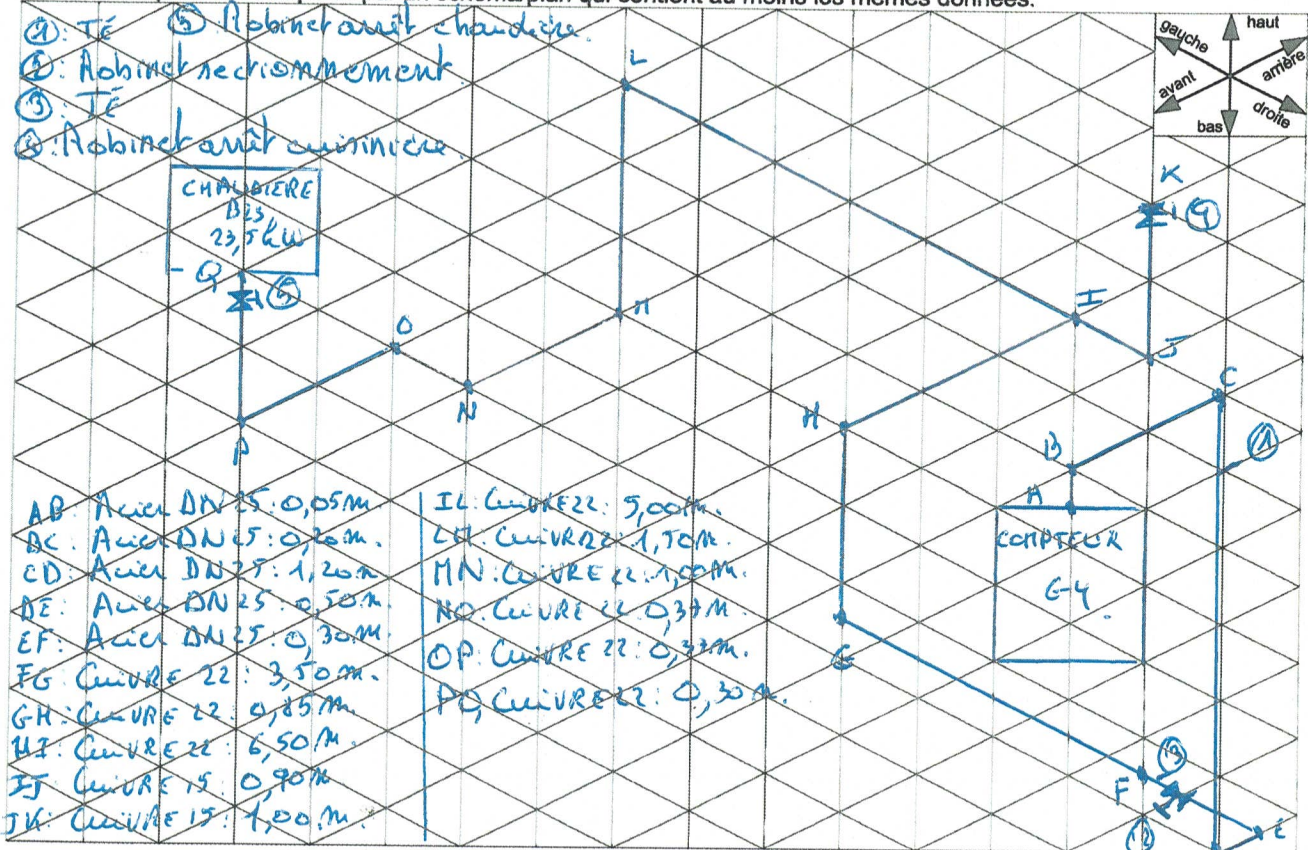 schéma plan qui contient au moins les mêmes données.
①: TÉ ⑤ Robinet arrêt chaudière.
②: Robinet sectionnement
③: TÉ
④: Robinet arrêt cuisinière.
haut
gauche
arrière
avant
droite
bas
L
K
④
CHAUDIERE
B23,
23,5 kW
Q
⑤
I
O
M
J
C
N
H
B
①
P
A
COMPTEUR
G-4
G
③
F
②
E
AB: Acier DN 25: 0,05m.
BC: Acier DN 25: 0,20m.
CD: Acier DN 25: 1,20m
DE: Acier DN 25: 0,50m.
EF: Acier DN 25: 0,30m.
FG: CuiVRE 22: 3,50m.
GH: CuiVRE 22: 0,85m.
HI: CuiVRE 22: 6,50m.
IJ: CuiVRE 15: 0,90m
JK: CuiVRE 15: 1,00m.
IL: CuiVRE 22: 5,00m.
LM: CuiVRE 22: 1,50m.
MN: CuiVRE 22: 1,00m.
NO: CuiVRE 22: 0,37m.
OP: CuiVRE 22:
PQ: CuiVRE 22: 0,30m.